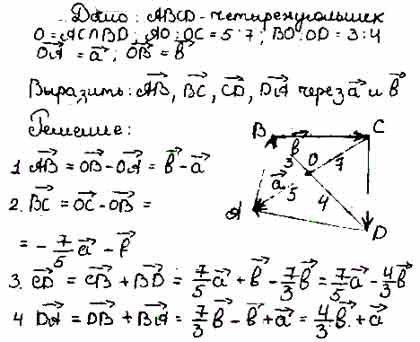 Дано: ABCD - четырехугольник
O = AC∩BD; AO:OC = 5:7; BO:OD = 3:4
→OA = →a; →OB = →b
Выразить: →AB, →BC, →CD, →DA через →a и →b
Решение:
1. →AB = →OB - →OA = →b - →a
2. →BC = →OC - →OB =
= - 7/5 →a - →b
3. →CD = →CB + →BD = 7/5 →a + →b - 7/3 →b = 7/5 →a - 4/3 →b
4 →DA = →DB + →BA = 7/3 →b - →b + →a = 4/3 →b + →a
B
C
→b
3
O
7
→a
5
4
A
D